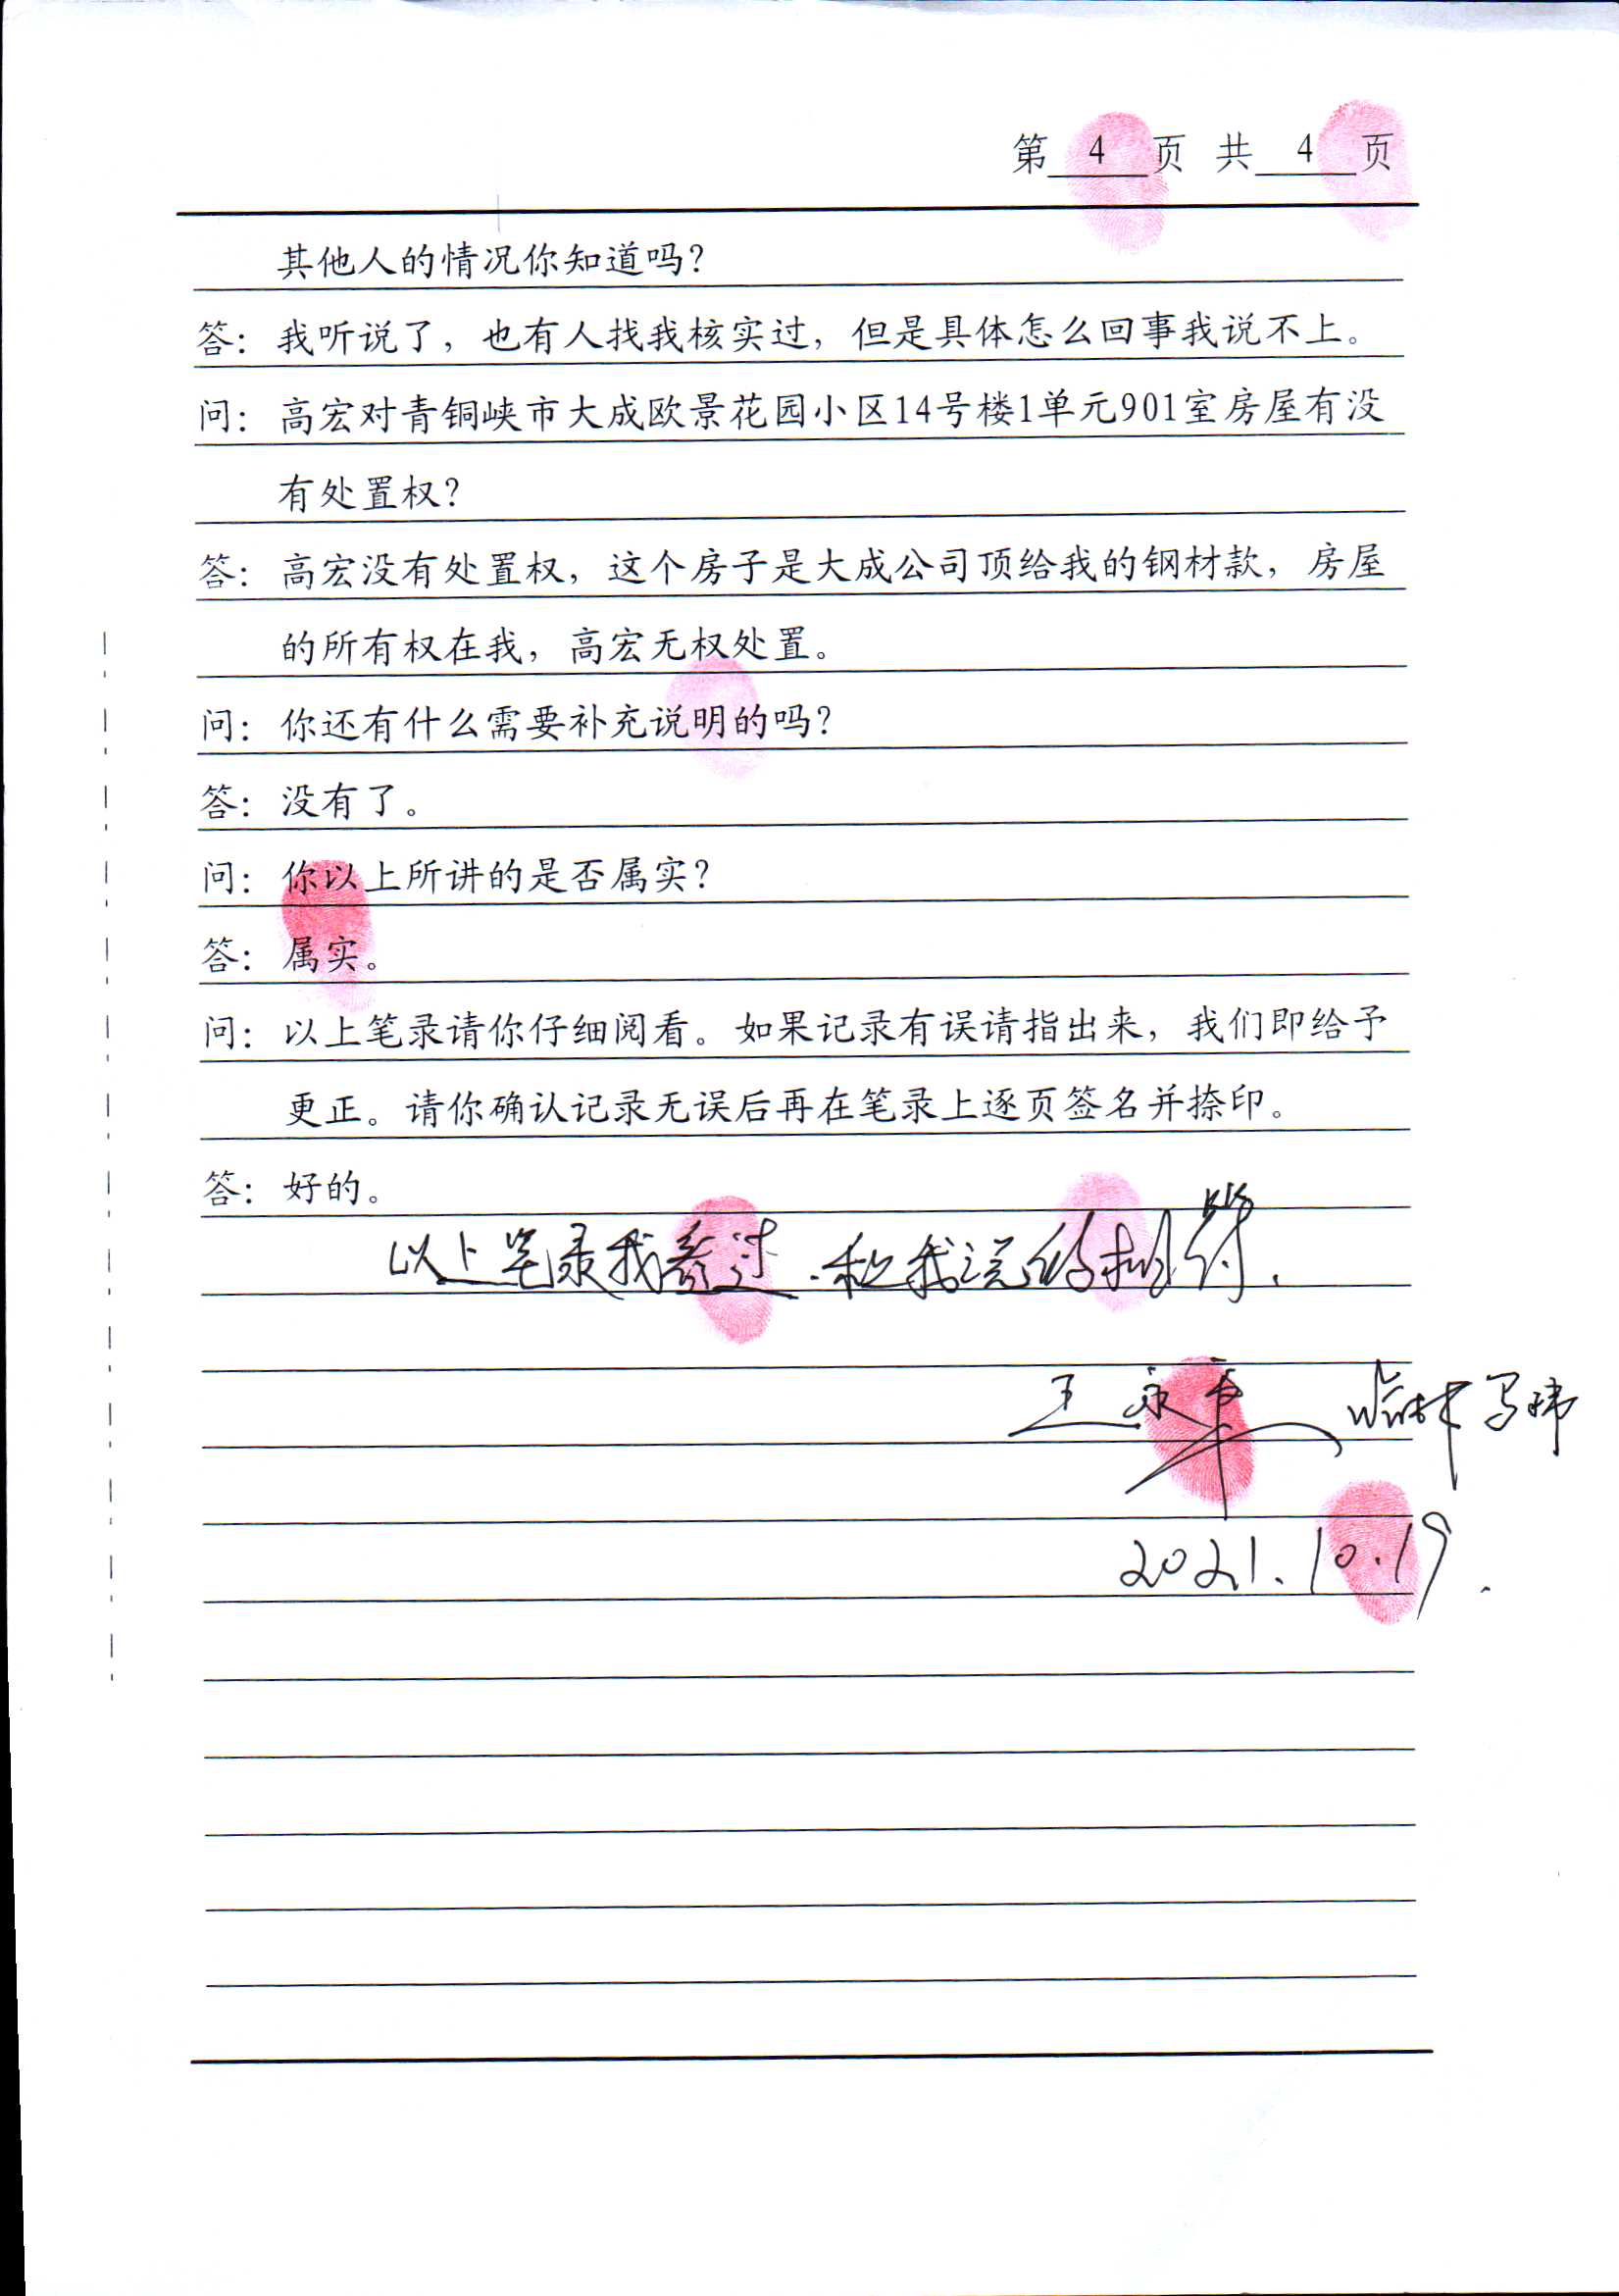 第 4 页 共 4 页
其他人的情况你知道吗?
答: 我听说了，也有人找我核实过，但是具体怎么回事我说不上。
问: 高宏对青铜峡市大成欧景花园小区14号楼1单元901室房屋有没
有处置权?
答: 高宏没有处置权，这个房子是大成公司顶给我的钢材款，房屋
的所有权在我，高宏无权处置。
问: 你还有什么需要补充说明的吗?
答: 没有了。
问: 你以上所讲的是否属实?
答: 属实。
问: 以上笔录请你仔细阅看。如果记录有误请指出来，我们即给予
更正。请你确认记录无误后再在笔录上逐页签名并捺印。
答: 好的。
以上笔录我看过.和我说的相符.
王永 马
2021.10.19.